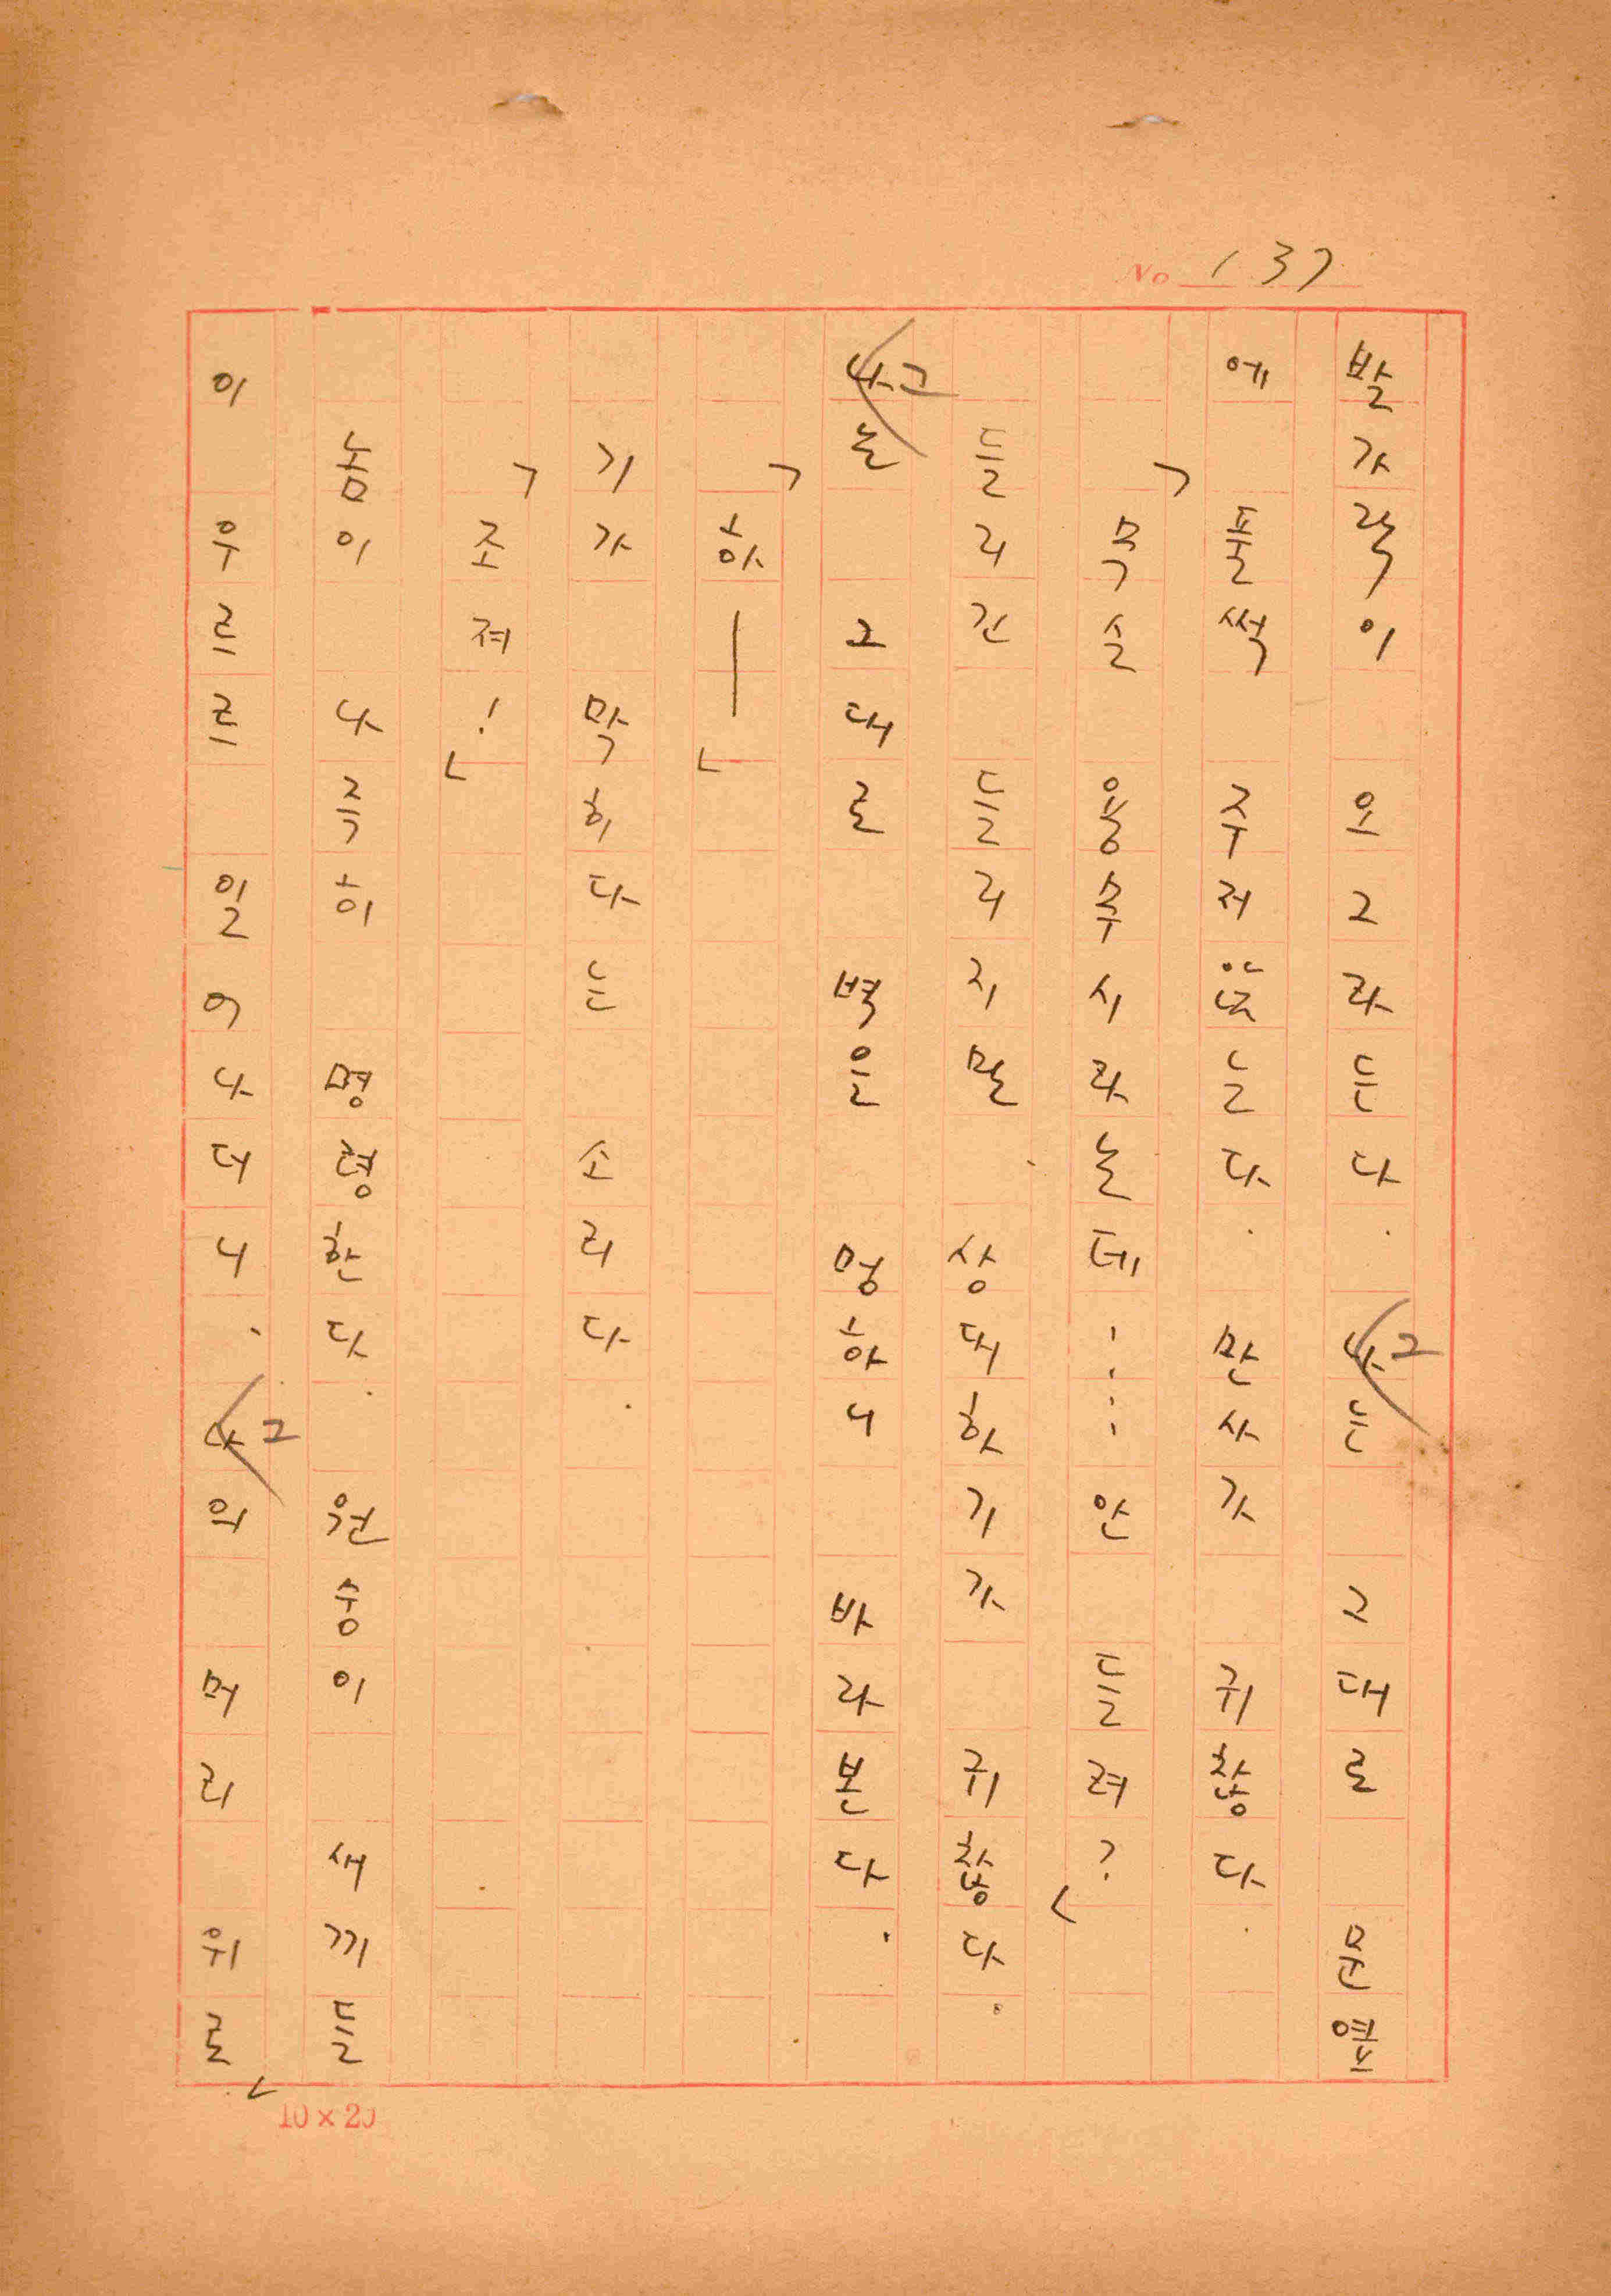 No 137
발가락이 오그라든다. 그는 그대로 문옆
에 풀썩 주저앉는다. 만사가 귀찮다.
「목숨 용수시라는데……안 들려?」
들리긴 들리지만 상대하기가 귀찮다.
그는 그대로 벽을 멍하니 바라본다.
「하―」
기가 막히다는 소리다.
「조져!」
놈이 나즉히 명령한다. 원숭이 새끼들
이 우르르 일어나더니. 그의 머리 위로
10×20